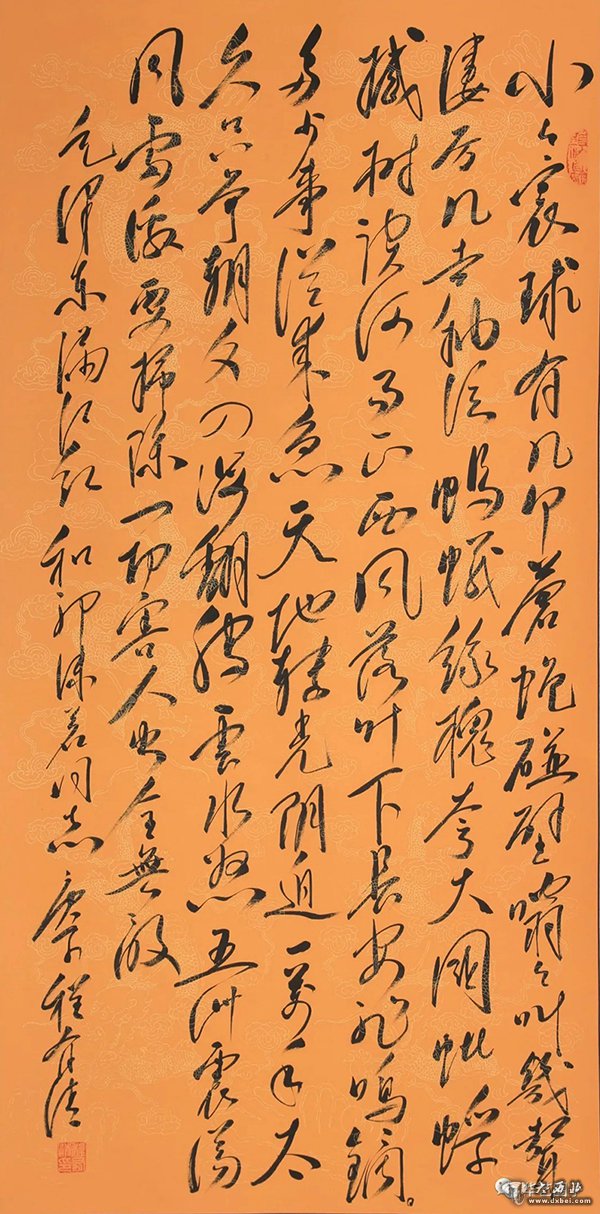 小々寰球有几个蒼蝇碰壁嗡々叫幾聲
凄厉几声抽泣蚂蟻缘槐夸大国蚍蜉
撼树谈何易正西风落叶下長安飛鳴镝。
多少事從来急天地转光阴迫一万年太
久只争朝夕四海翻腾雲水怒五洲震荡
风雷激要掃除一切害人虫全無敌
毛澤东满江红 和郭沫若同志 庚子 程有清
大西北
www.dxbei.com